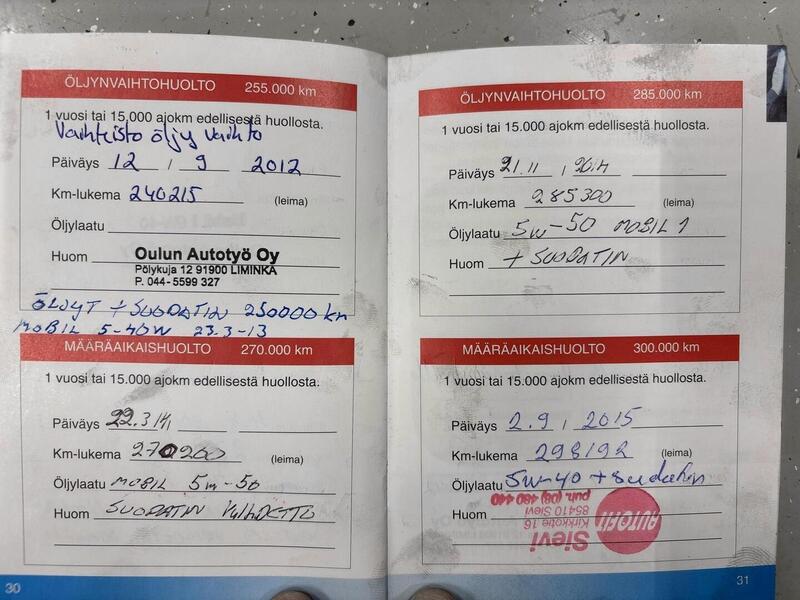 ÖLJYNVAIHTOHUOLTO 255.000 km
1 vuosi tai 15.000 ajokm edellisestä huollosta.
Vaihteisto öljy vaihto
Päiväys 12 / 9 2012
Km-lukema 240215 (leima)
Öljylaatu
Huom Oulun Autotyö Oy
Pölykuja 12 91900 LIMINKA
P. 044-5599 327
ÖLJYT + SUODATIN 250000 km
MOBIL 5-40W 23.3-13
MÄÄRÄAIKAISHUOLTO 270.000 km
1 vuosi tai 15.000 ajokm edellisestä huollosta.
Päiväys 22.3
Km-lukema 270200 (leima)
Öljylaatu MOBIL 5w-50
Huom SUODATIN VAIHDETTU
30
ÖLJYNVAIHTOHUOLTO 285.000 km
1 vuosi tai 15.000 ajokm edellisestä huollosta.
Päiväys 21.11 / 2014
Km-lukema 285300 (leima)
Öljylaatu 5w-50 MOBIL 1
Huom + SUODATIN
MÄÄRÄAIKAISHUOLTO 300.000 km
1 vuosi tai 15.000 ajokm edellisestä huollosta.
Päiväys 2.9 / 2015
Km-lukema 298192 (leima)
Öljylaatu 5w-40 + suodatin
Huom
AUTOFIT
Sievi
Kirkkotie 16
85410 Sievi
puh. (08) 480 440
31